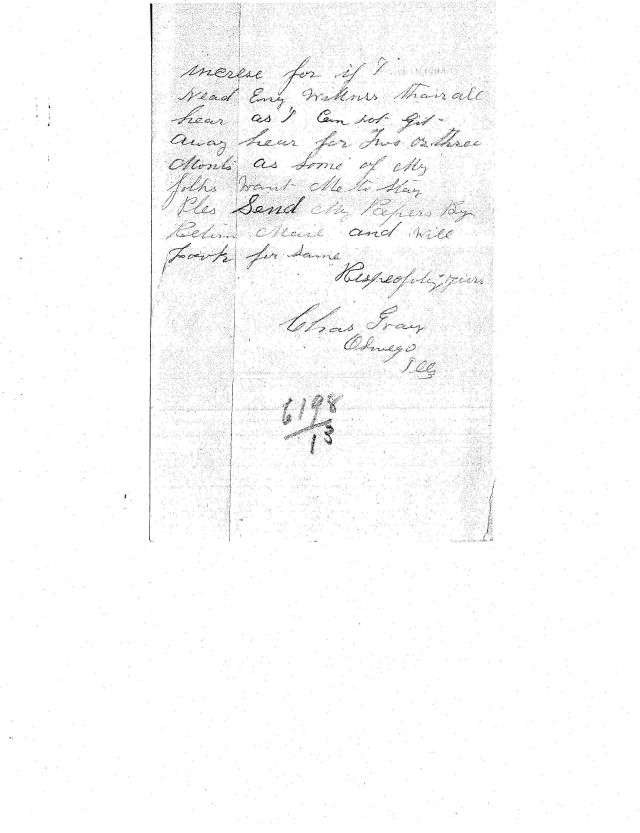 increse for if I
Nead Eny Witkniss thair all
hear as I Can not git
away hear for Two or three
Monts as some of My
folks Want Me to Stay
Ples Send My Papers By
Return Mail and will
Look for same
Respecfuly yours
Chas Gray
Oswego
Ills
6198
13